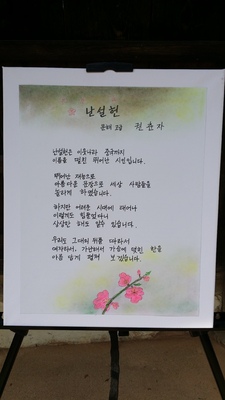 난설헌
문태 고금 권춘자
난설헌은 이웃나라 중국까지
이름을 떨친 뛰어난 시인입니다.
뛰어난 재능으로
아름다운 문장으로 세상 사람들을
놀라게 하였습니다.
하지만 어려운 시대에 태어나
이렇게도 힘들었다니
상상만 해도 알수 있습니다.
우리도 그대의 뒤를 따라서
여자라서, 가난해서 가슴에 맺힌 한을
아름 답게 펼쳐 보겠습니다.